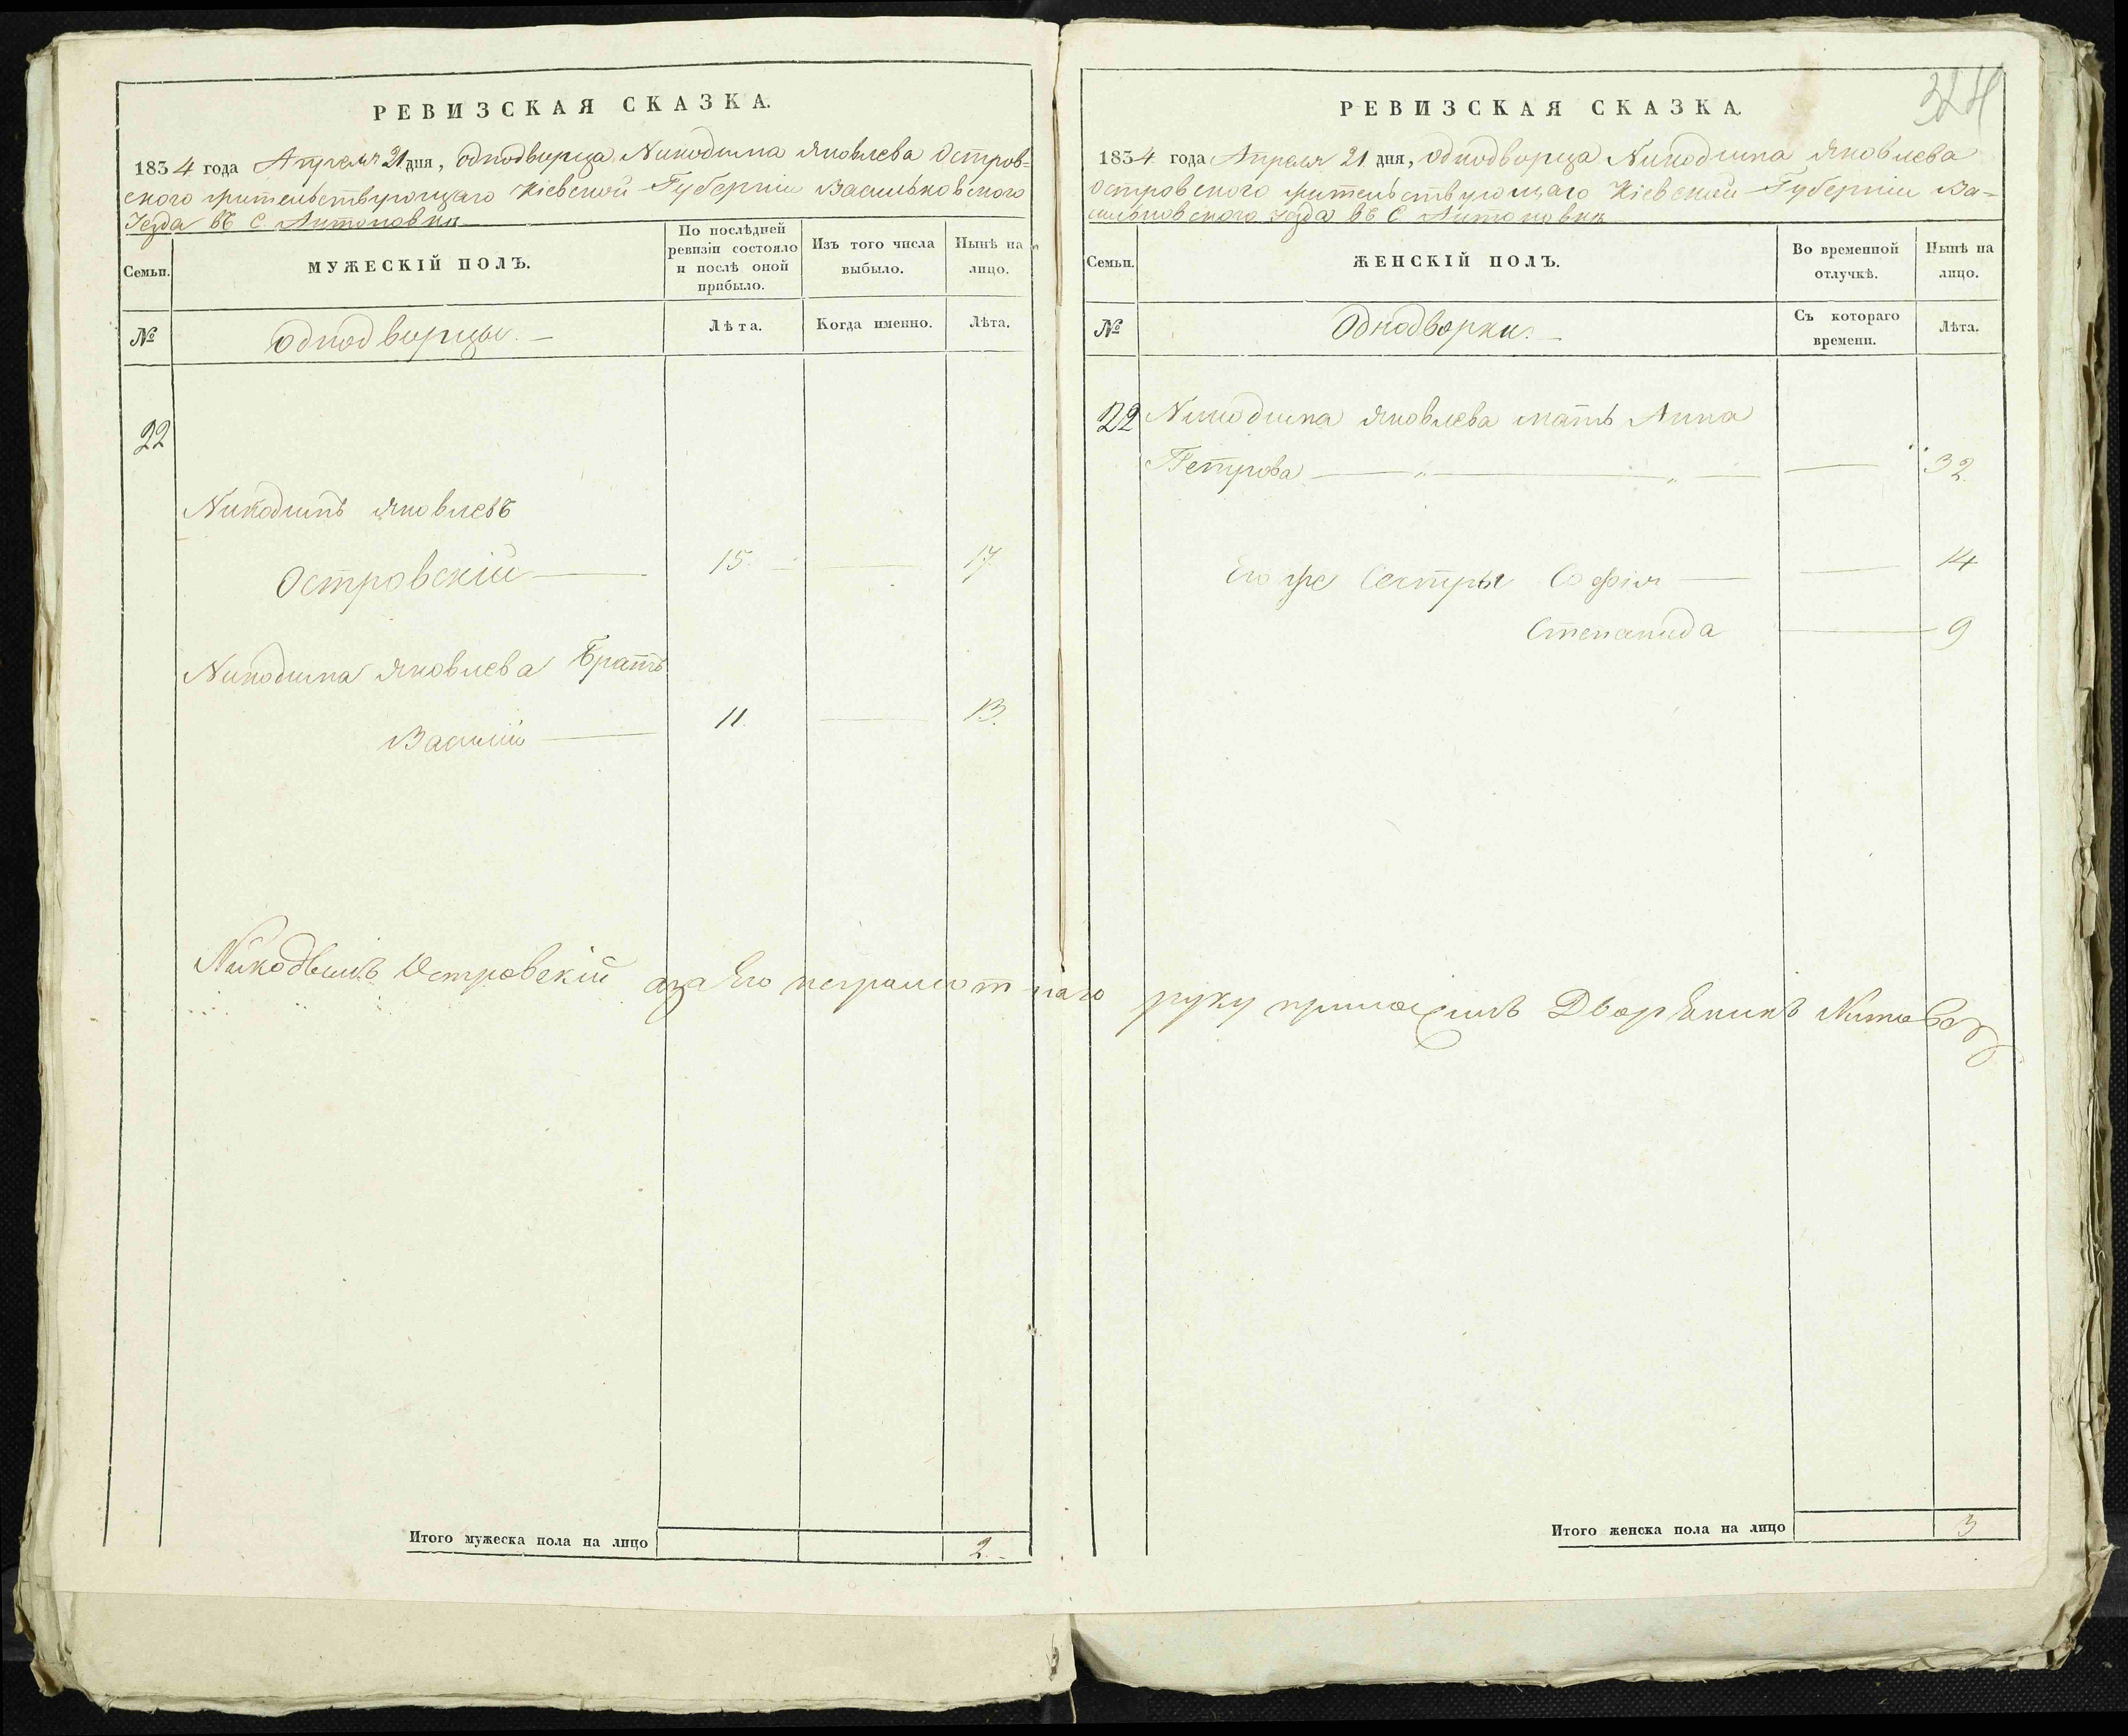 РЕВИЗСКАЯ СКАЗКА.
1834 года Апреля 21 дня, однодворца Никодима Яковлева Остров=
ского жительствующаго Кіевской Губерніи Васильковского
Уезда въ С. Антоновки
Семьи.
МУЖЕСКІЙ ПОЛЪ.
По послѣдней
ревизіи состояло
и послѣ оной
прибыло.
Изъ того числа
выбыло.
Нынѣ на
лицо.
№
Однодворцы. —
Лѣта.
Когда именно.
Лѣта.
22
Никодимъ Яковлевъ
Островскій — 15. — 17
Никодима Яковлева Братъ
Василій — 11. — 13.
Никодымъ Островскій а за Его неграмотнаго руку приложилъ Дворянинъ
Итого мужеска пола на лицо 2.
324
РЕВИЗСКАЯ СКАЗКА.
1834 года Апреля 21 дня, однодворца Никодима Яковлева
Островского жительствующаго Кіевской Губерніи Ва=
сильковского уезда въ С. Антоновки
Семьи.
ЖЕНСКІЙ ПОЛЪ.
Во временной
отлучкѣ.
Нынѣ на
лицо.
№
Однодворки. —
Съ котораго
времени.
Лѣта.
22 Никодима Яковлева мать Анна
Петрова — „ — „ — — 32.
Его же Сестры Софія — — 14
Степанида — 9
Итого женска пола на лицо 3